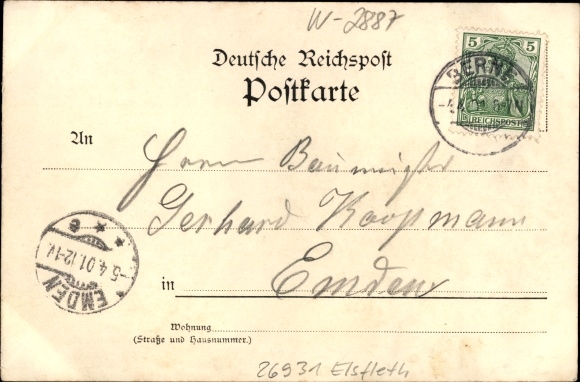 W-2887
Deutsche Reichspost
Postkarte
5 5
REICHSPOST
BERNE
An
Herrn Baumeister
Gerhard Koopmann
in Emden
EMDEN
5.4.01.12-1V.
* * e
Wohnung
(Straße und Hausnummer.)
26931 Elsfleth